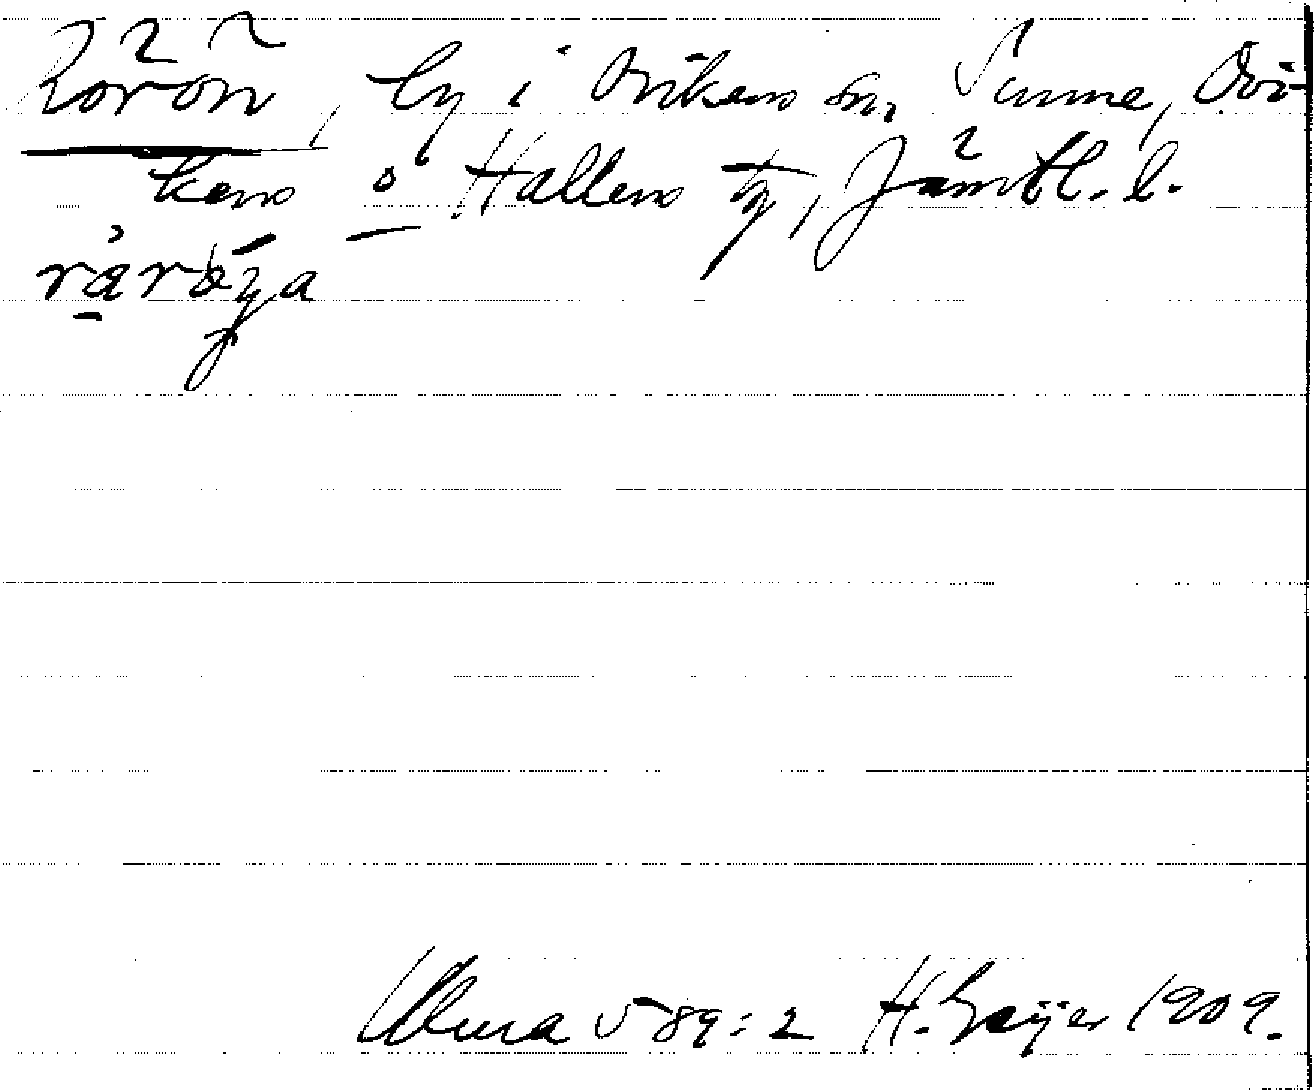 Rörön, by i Ovikens sn, Sunne, Ovi-
kens o Hallens tg, Jämtl. l.
Ulma 589:2 H. Geijer 1909.